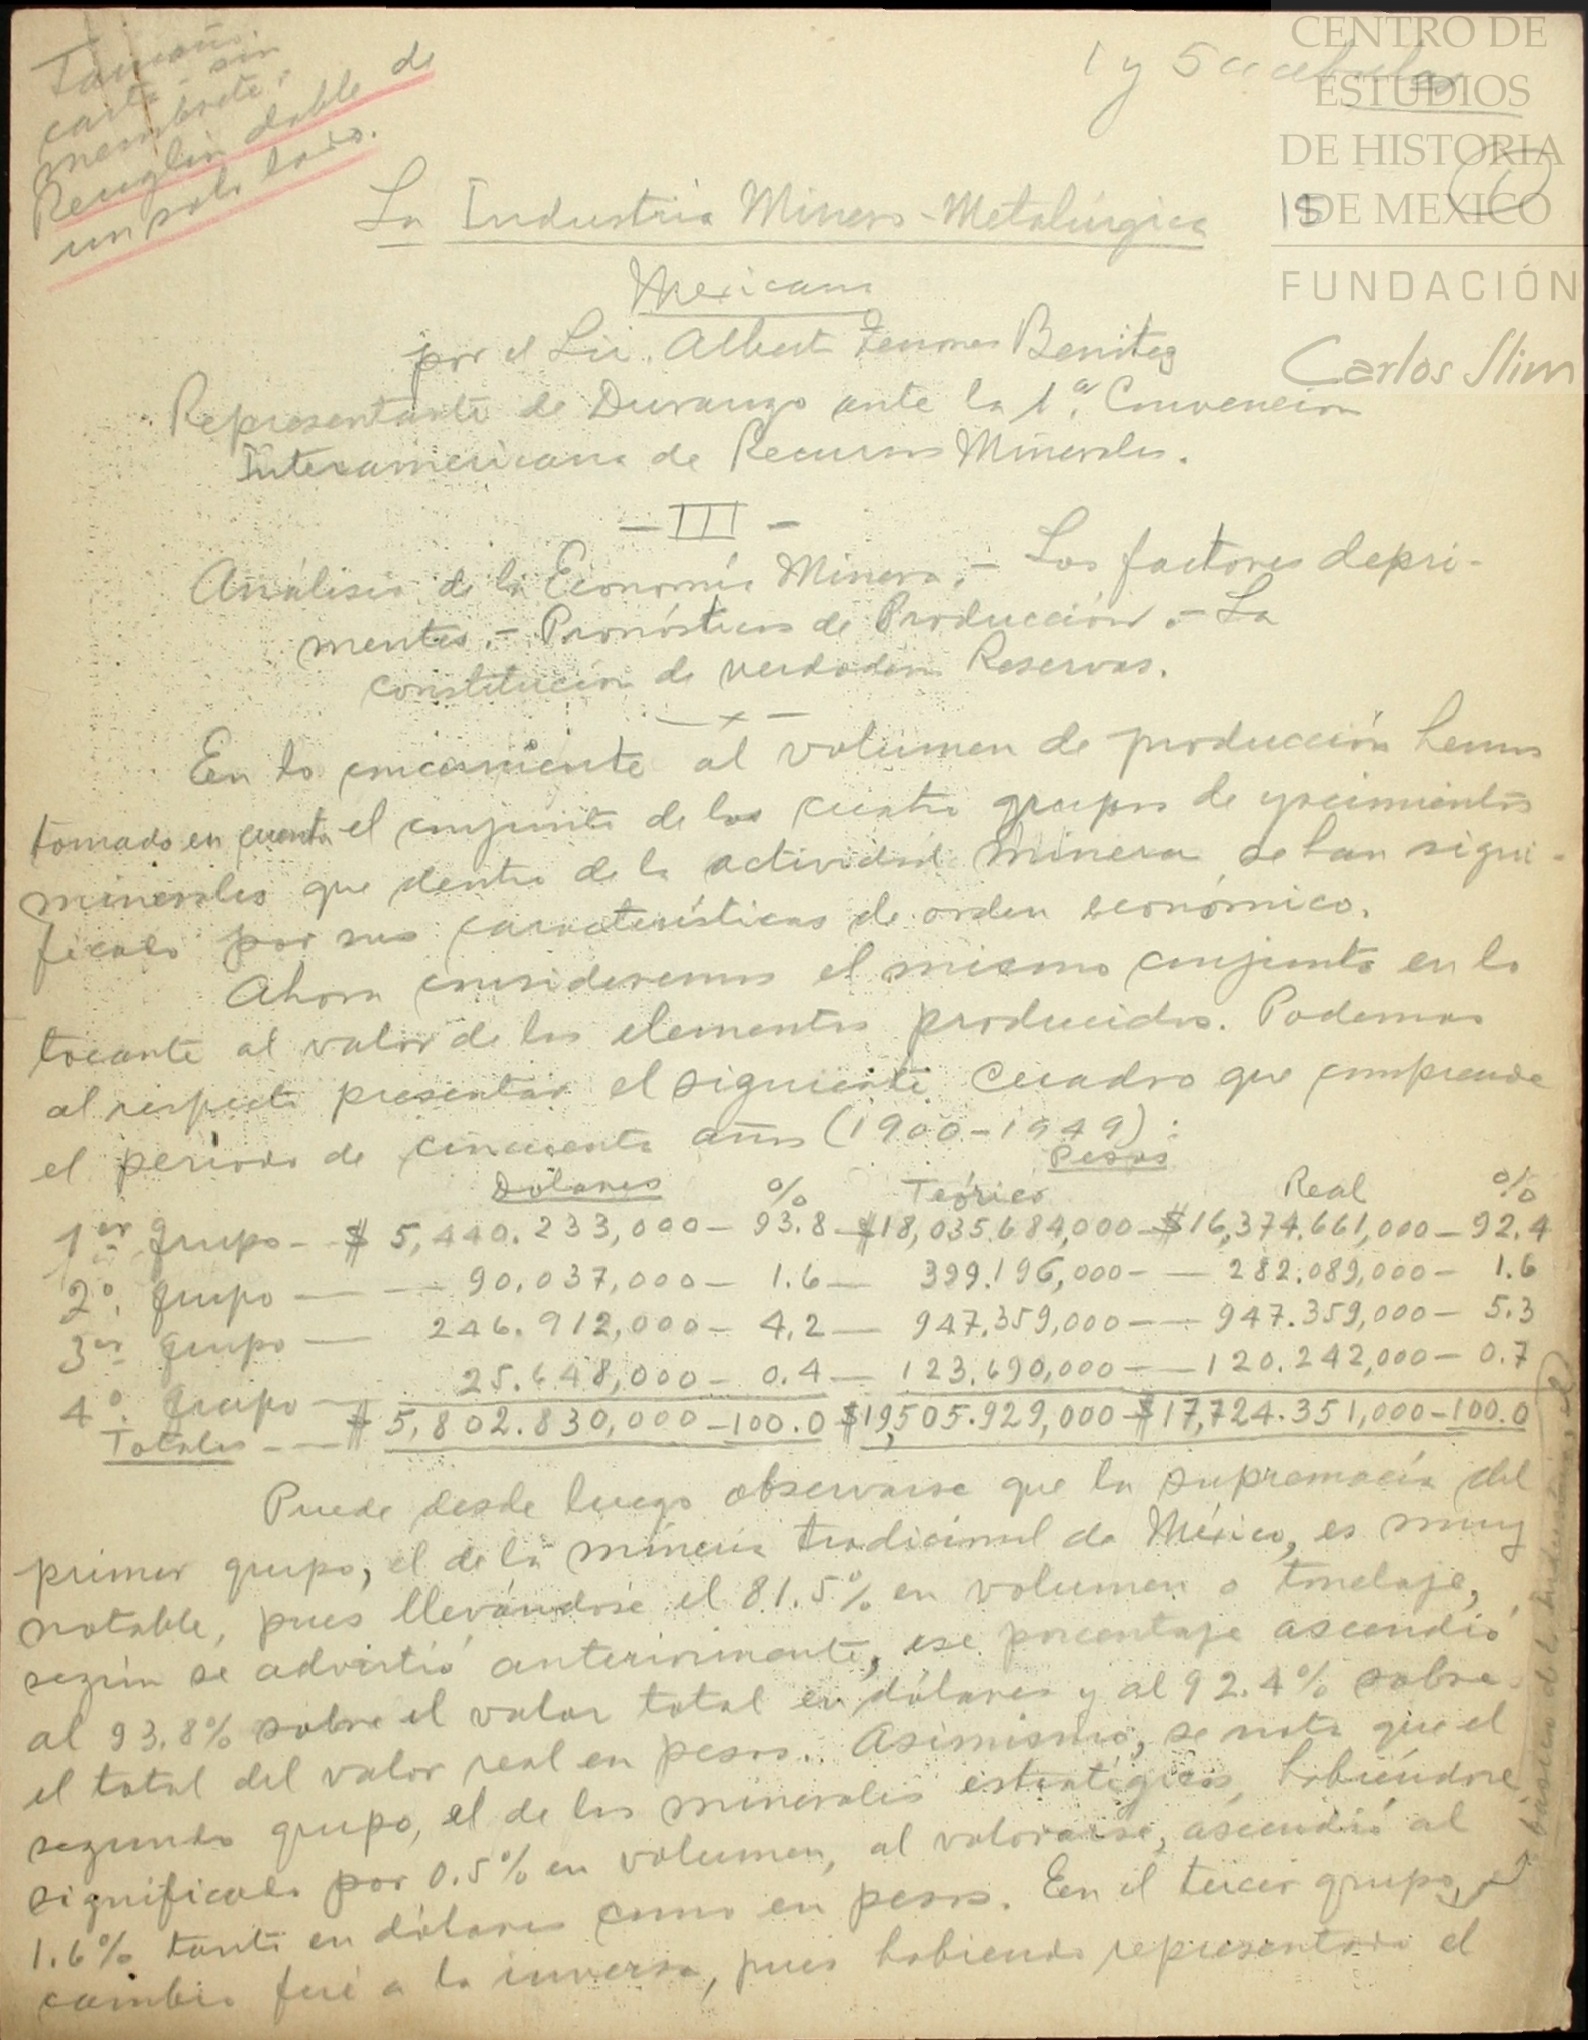 Tamaño
carta - sin
membrete.
Renglón doble de
un solo lado.
1 y 5
CENTRO DE
ESTUDIOS
DE HISTORIA
DE MEXICO
FUNDACIÓN
Carlos Slim
La Industria Minero-Metalúrgica
Mexicana
por el Lic. Alberto Terrones Benitez
Representante de Durango ante la 1ª. Convencion
Interamericana de Recursos Minerales.
- III -
Análisis de la Economía Minera.- Los factores depri-
mentes.- Pronósticos de Producción.- La
constitución de verdaderas Reservas.
— x —
En lo concerniente al volumen de producción hemos
tomado en cuenta el conjunto de los cuatro grupos de yacimientos
minerales que dentro de la actividad minera se han signi-
ficado por sus características de orden económico.
Ahora consideremos el mismo conjunto en lo
tocante al valor de los elementos producidos. Podemos
al respecto presentar el siguiente cuadro que comprende
el periodo de cincuenta años (1900-1949):
Pesos
Dólares % Teórico Real %
1er grupo - $ 5,440.233,000 - 93.8 - $18,035.684,000 - $16,374.661,000 - 92.4
2º. grupo — 90.037,000 - 1.6 — 399.196,000 - — 282.089,000 - 1.6
3er grupo — 246.912,000 - 4.2 — 947.359,000 - — 947.359,000 - 5.3
4º. grupo — 25.648,000 - 0.4 — 123.690,000 — 120.242,000 - 0.7
Totales - — $ 5,802.830,000 - 100.0 $19,505.929,000 - $17,724.351,000 - 100.0
Puede desde luego observarse que la supremacía del
primer grupo, el de la minería tradicional de México, es muy
notable, pues llevándose el 81.5% en volumen o tonelaje,
según se advirtió anteriormente, ese porcentaje ascendió
al 93.8% sobre el valor total en dólares y al 92.4% sobre
el total del valor real en pesos. Asimismo, se nota que el
segundo grupo, el de los minerales estratégicos, habiéndose
significado por 0.5% en volumen, al valorarse, ascendió al
1.6% tanto en dólares como en pesos. En el tercer grupo, el
básico de la industria, el
cambio fué a la inversa, pues habiendo representado el